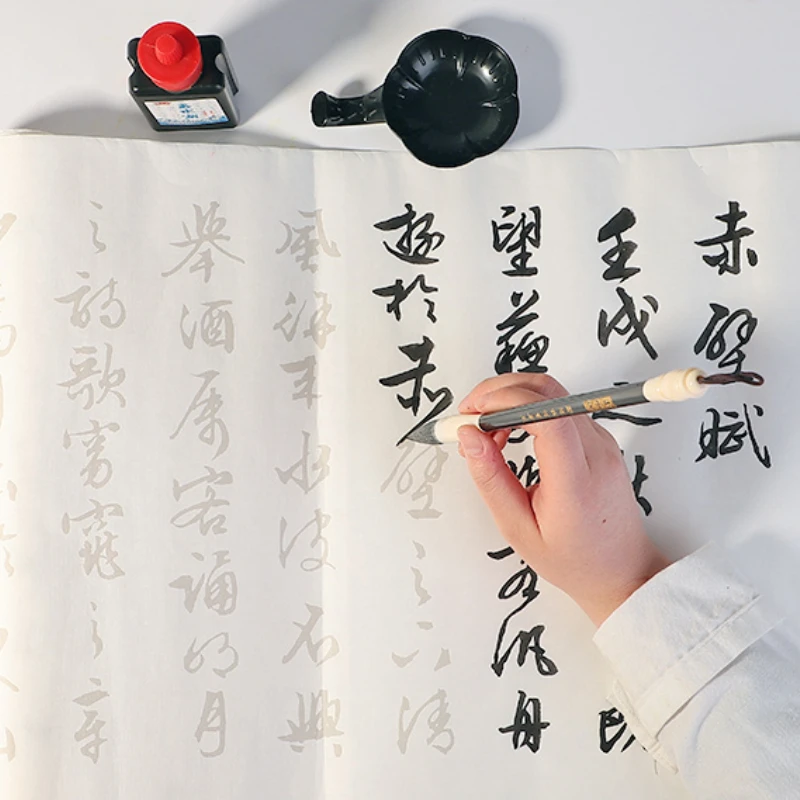 赤壁賦
壬戌之秋既
望蘇客泛舟
遊於赤壁之下清
風徐來水波不興
舉酒屬客誦明月
之詩歌窈窕之章